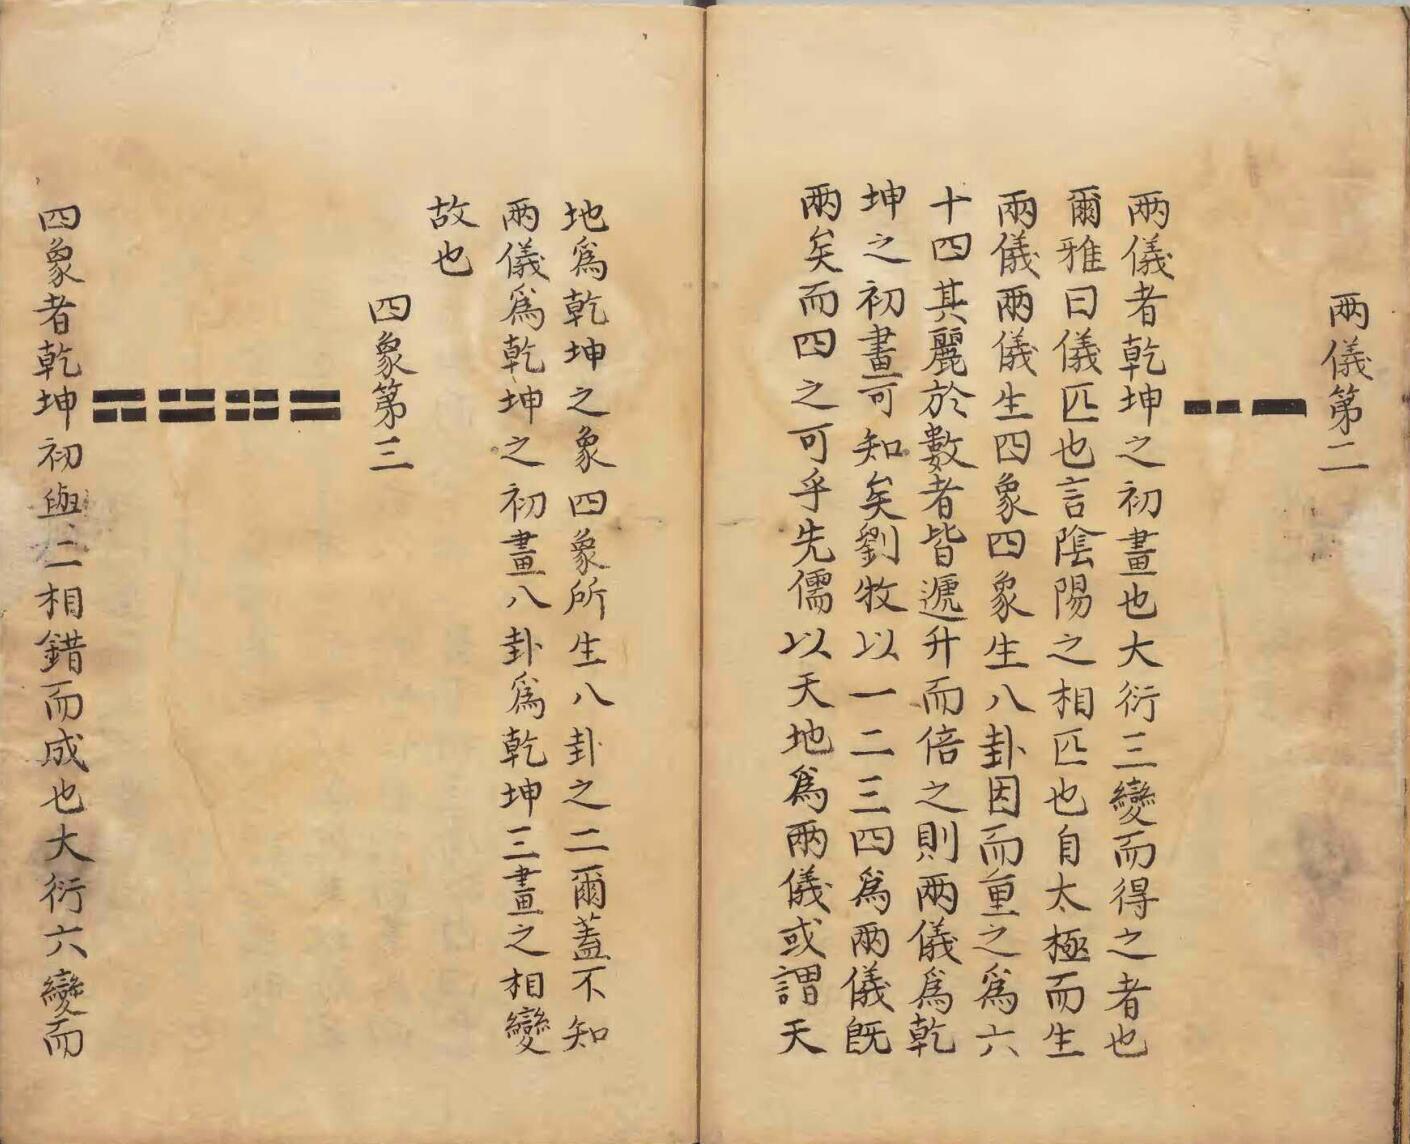 兩儀第二
兩儀者乾坤之初畫也大衍三變而得之者也
爾雅曰儀匹也言陰陽之相匹也自太極而生
兩儀兩儀生四象四象生八卦因而重之爲六
十四其麗於數者皆遞升而倍之則兩儀爲乾
坤之初畫可知矣劉牧以一二三四爲兩儀旣
兩矣而四之可乎先儒以天地爲兩儀或謂天
地爲乾坤之象四象所生八卦之二爾蓋不知
兩儀爲乾坤之初畫八卦爲乾坤三畫之相變
故也
四象第三
四象者乾坤初與二相錯而成也大衍六變而